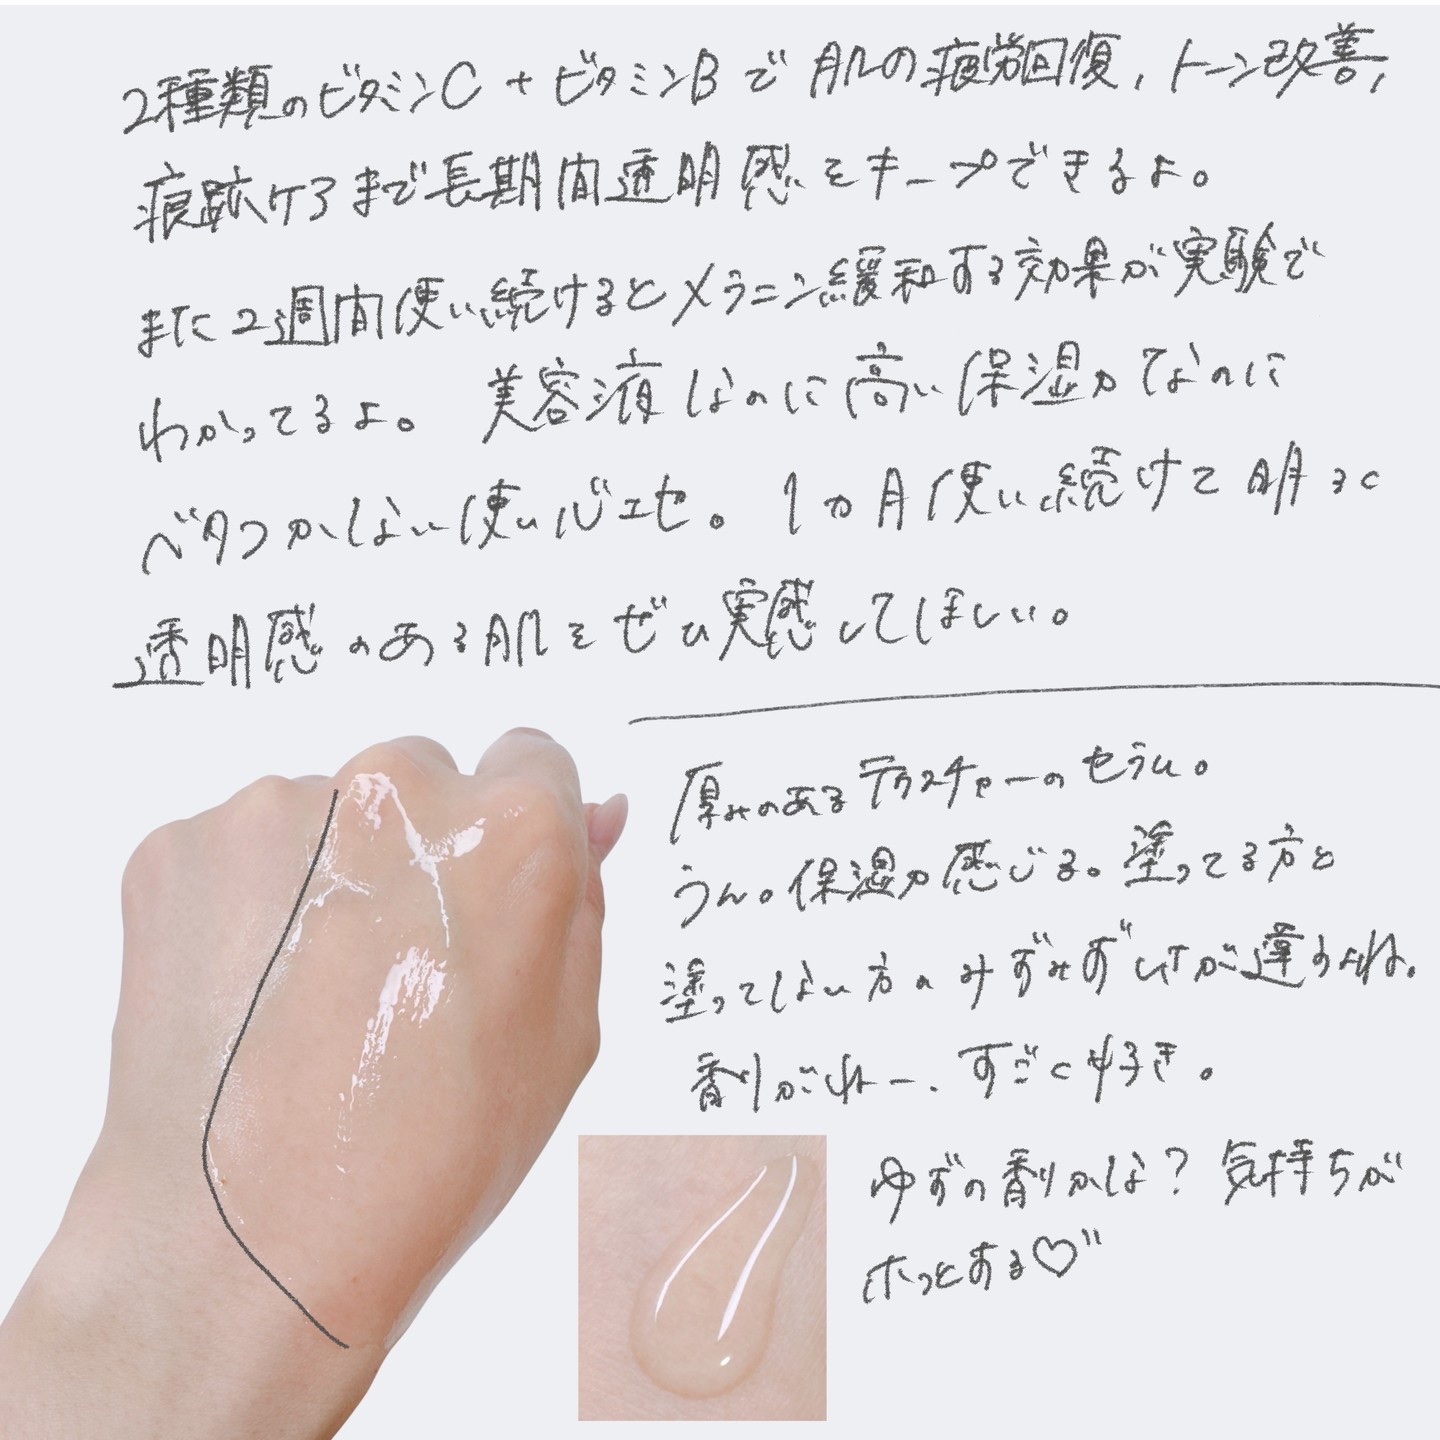 2種類のビタミンC + ビタミンBで 肌の疲労回復、トーン改善、
痕跡ケアまで長期間透明感をキープできるよ。
また2週間使い続けるとメラニン緩和する効果が実験で
わかってるよ。美容液なのに高い保湿力なのに
ベタつかしない使い心エセ。1カ月使い続けて明るく
透明感のある肌をぜひ実感してほしい。
厚みのあるテクスチャーのセラム。
うん。保湿力感じる。塗ってる方と
塗ってしない方のみずみずしさが違うよね。
香りがねー、すごく好き。
ゆずの香りかしな？気持ちが
ホッとする♡"